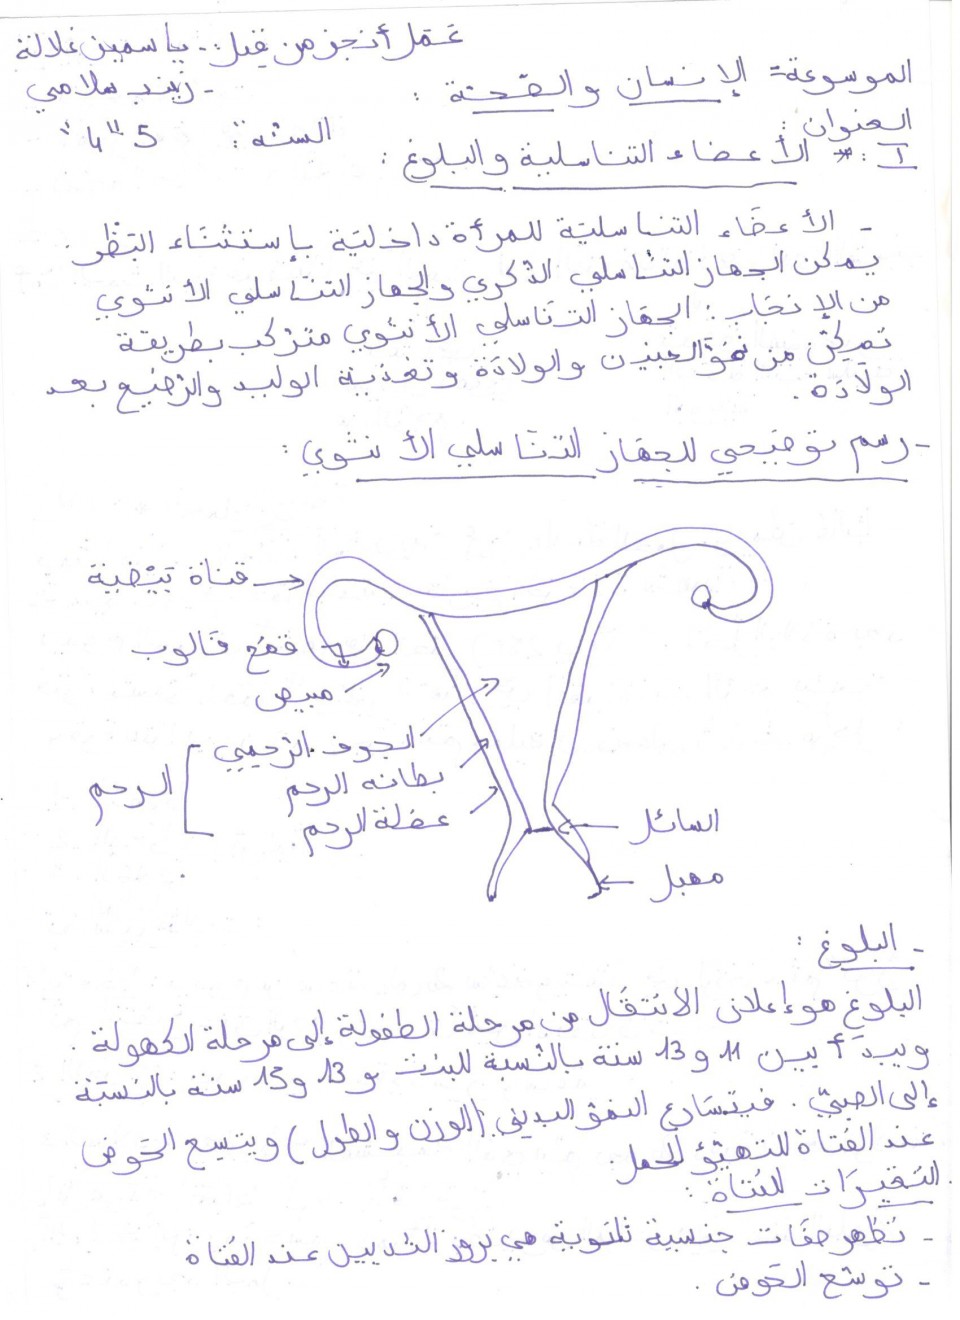 عمل أنجز من قبل: - ياسمين غلالة
- زينب سلامي
الموسوعة: الإنسان والصّحة :
العنوان :
السنة: 5 "4"
I : * الأعضاء التناسلية والبلوغ :
- الأعضَاء التناسليّة للمرأة داخليّة بإستثنَاء البَظْر.
يمكن الجهاز التنَاسلي الذّكري والجهاز التنَاسلي الأنثوي
من الإنجَاب : الجهَاز التنَاسلي الأنثوي متركب بطريقة
تمكّن من نموّ الجنين والولادَة وتغذية الوليد والرّضيع بعد
الولادَة.
- رسم توضيحي للجهَاز التنَاسلي الأنثوي :
قناة بَيْضية
قمع قالوب
مبيض
الجوف الرّحمي
بطانه الرحم
عضلة الرحم
الرحم
السائل
مهبل
- البلوغ :
البلوغ هو إعلان الانتقَال من مرحلة الطفولة إلى مرحلة الكهولة.
ويبدَأ بين 11 و 13 سنة بالنّسبة للبنت و 13 و 15 سنة بالنّسبَة
إلى الصبيّ. فيتسَارع النموّ البدني (الوزن والطول) ويتسع الحَوض
عند الفتَاة للتهيّؤ للحمل.
التغيّرَات للفتَاة :
- تظْهر صفَات جنسية ثانوية هي بروز الثديين عند الفتاة
- توسّع الحَوض.